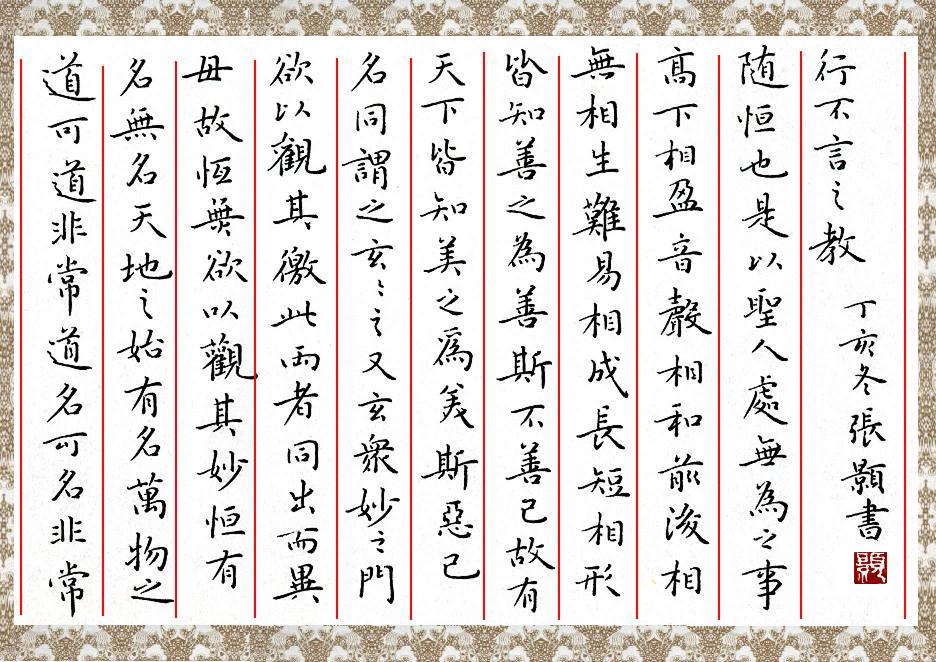 道可道非常道名可名非常
名無名天地之始有名萬物之
母故恆無欲以觀其妙恒有
欲以觀其徼此兩者同出而異
名同謂之玄〻之又玄衆妙之門
天下皆知美之爲美斯惡已
皆知善之為善斯不善已故有
無相生難易相成長短相形
高下相盈音聲相和前後相
随恒也是以聖人處無為之事
行不言之教
丁亥冬張顥書
顥